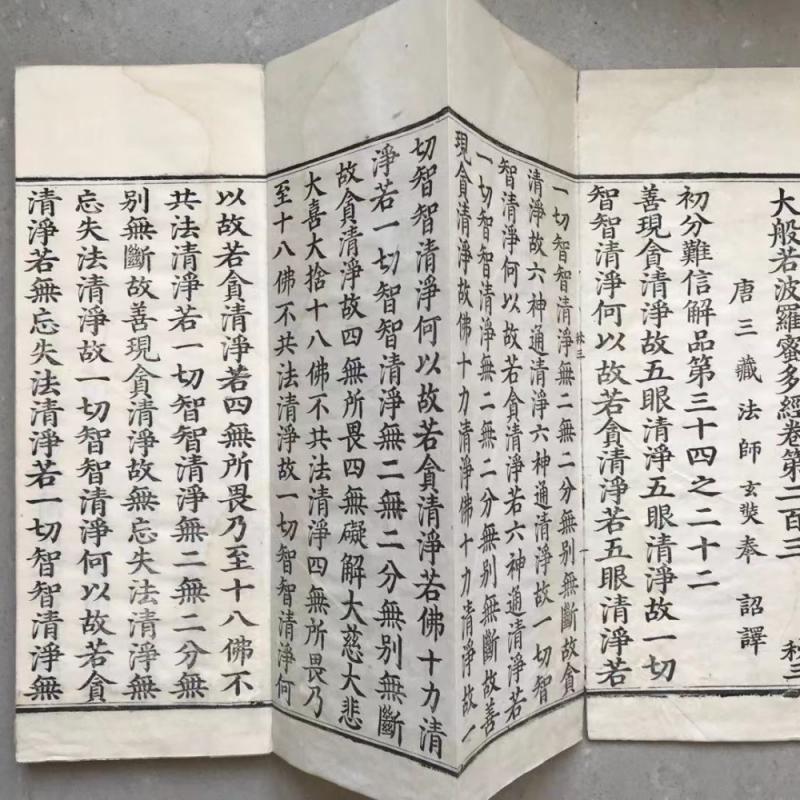 大般若波羅蜜多經卷第二百三 秋三
唐三藏法師玄奘奉 詔譯
初分難信解品第三十四之二十二
善現貪清淨故五眼清淨五眼清淨故一切
智智清淨何以故若貪清淨若五眼清淨若
一切智智清淨無二無二分無別無斷故貪
清淨故六神通清淨六神通清淨故一切智
智清淨何以故若貪清淨若六神通清淨若
一切智智清淨無二無二分無別無斷故善
現貪清淨故佛十力清淨佛十力清淨故一
切智智清淨何以故若貪清淨若佛十力清
淨若一切智智清淨無二無二分無別無斷
故貪清淨故四無所畏四無礙解大慈大悲
大喜大捨十八佛不共法清淨四無所畏乃
至十八佛不共法清淨故一切智智清淨何
以故若貪清淨若四無所畏乃至十八佛不
共法清淨若一切智智清淨無二無二分無
別無斷故善現貪清淨故無忘失法清淨無
忘失法清淨故一切智智清淨何以故若貪
清淨若無忘失法清淨若一切智智清淨無